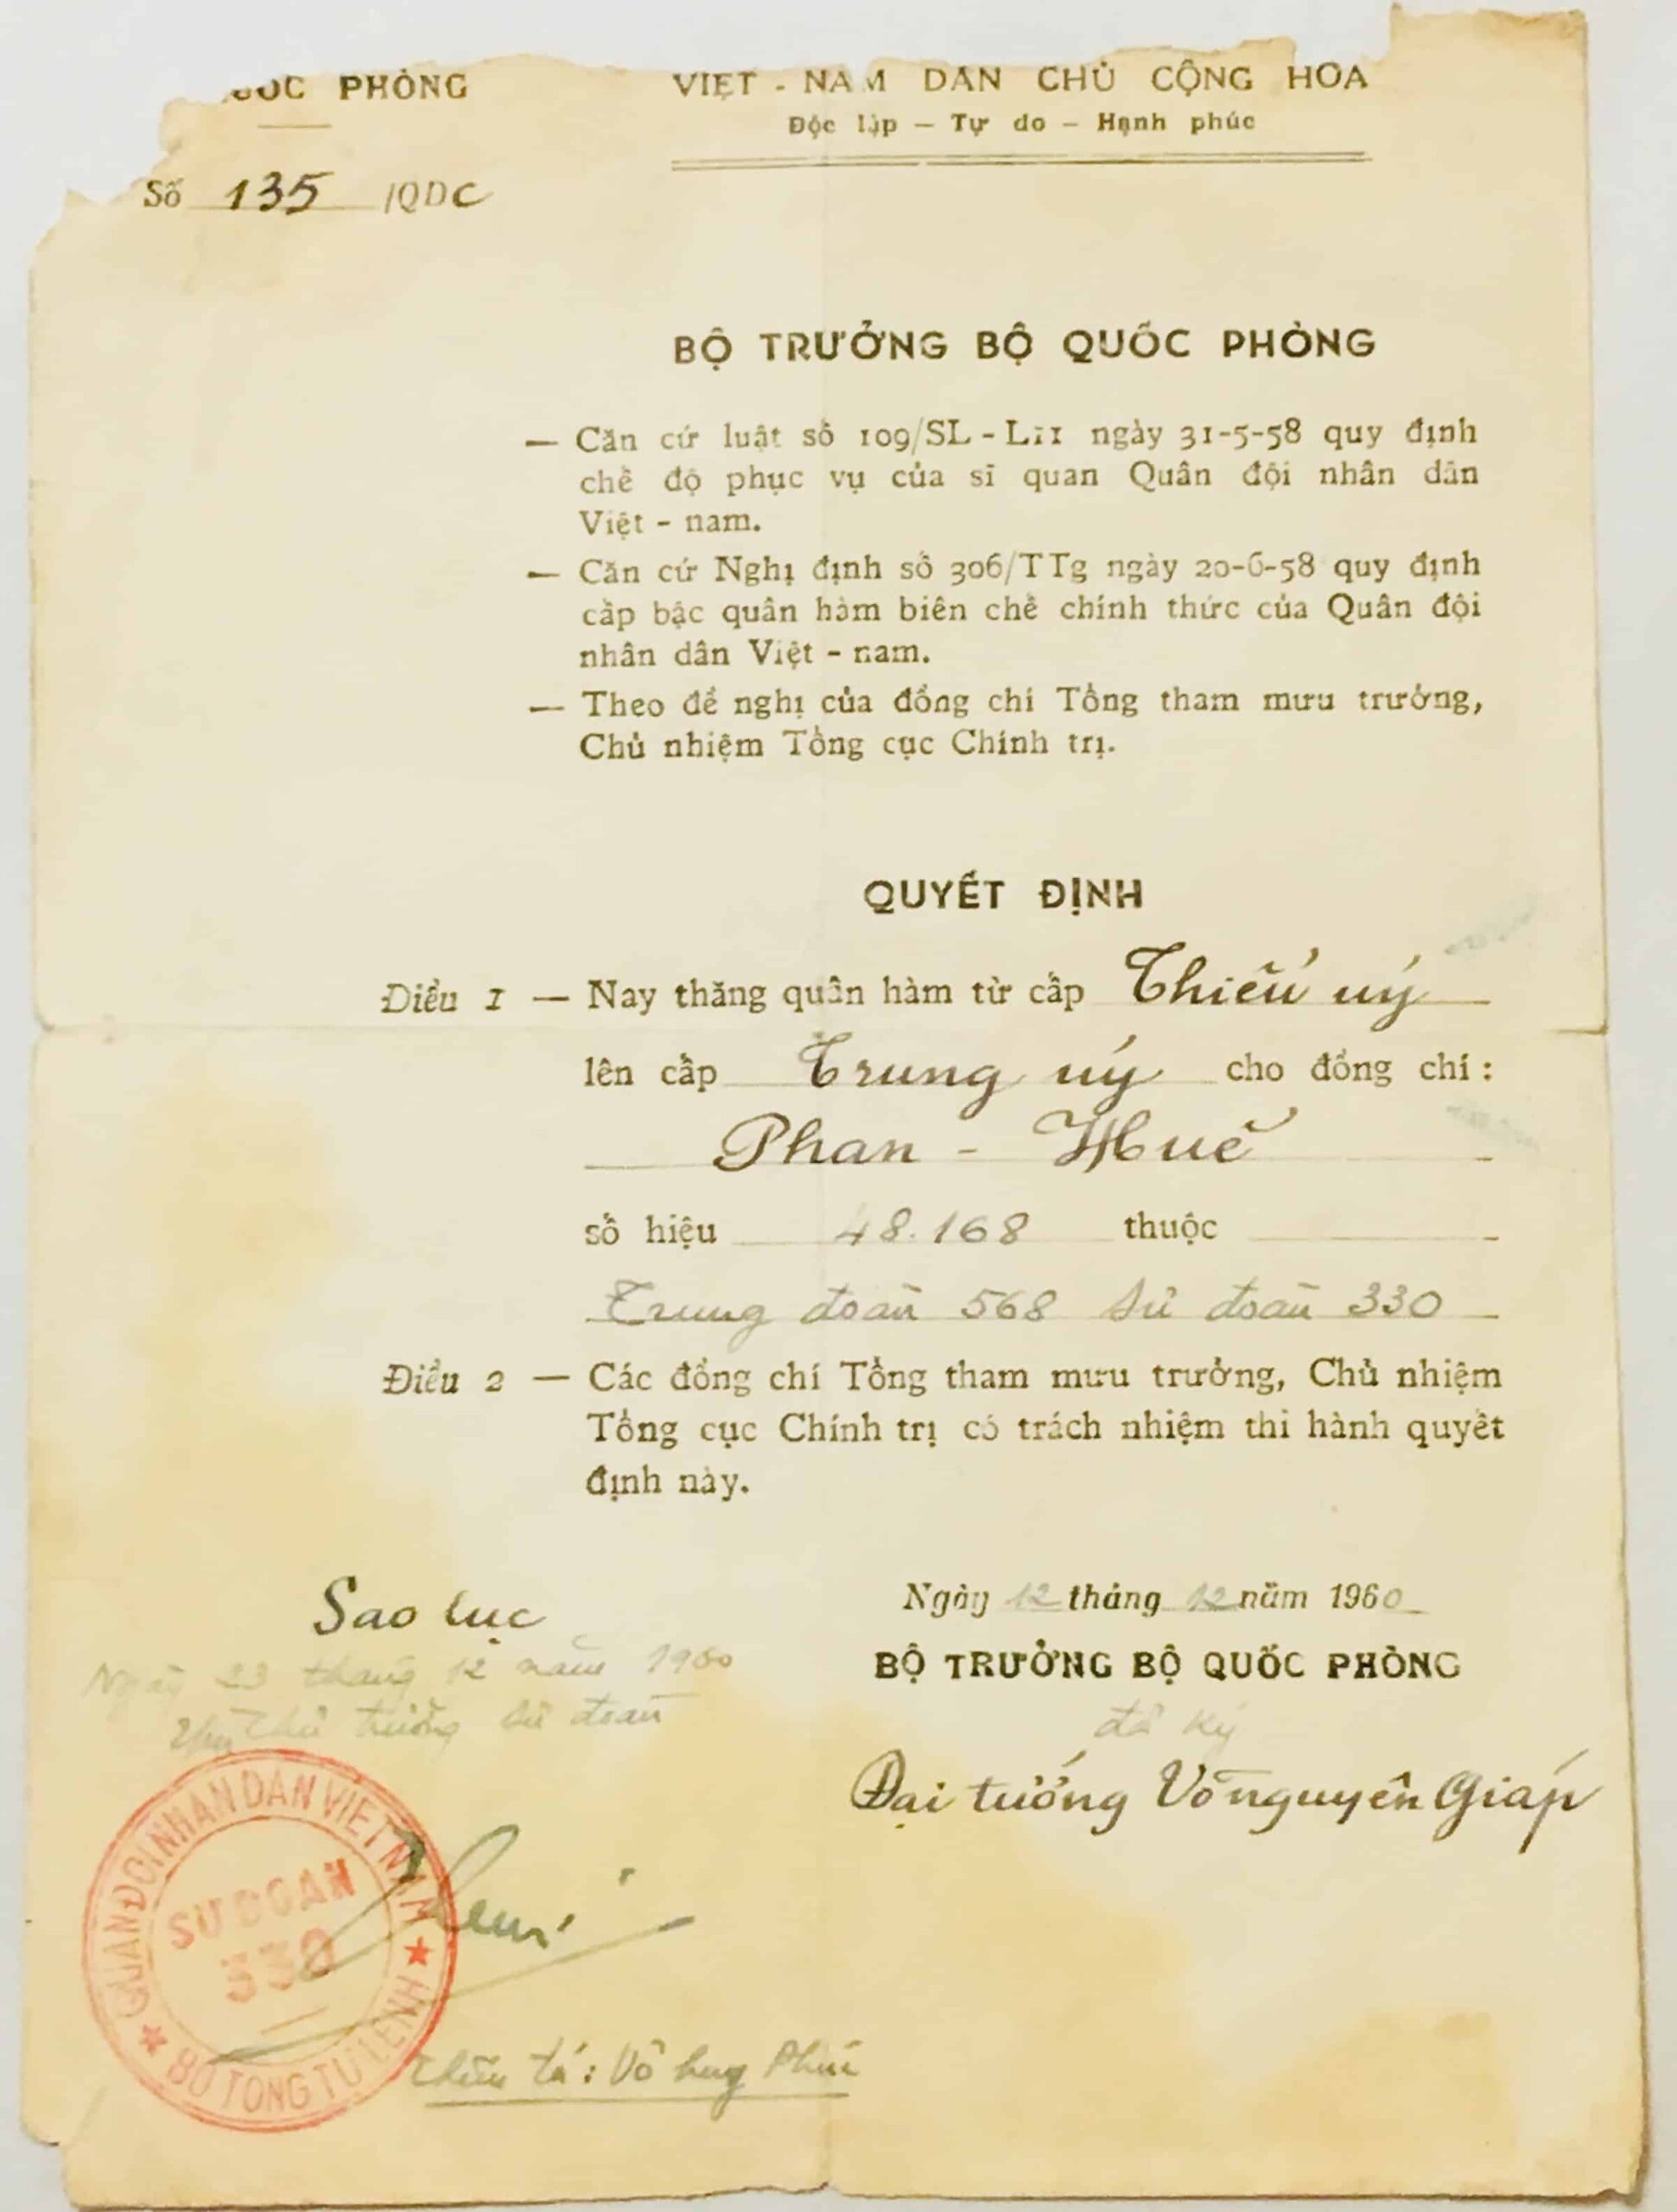 QUỐC PHÒNG
VIỆT - NAM DÂN CHỦ CỘNG HÒA
Độc lập — Tự do — Hạnh phúc
Số 135 /QDC
BỘ TRƯỞNG BỘ QUỐC PHÒNG
— Căn cứ luật số 109/SL - L11 ngày 31-5-58 quy định
chế độ phục vụ của sĩ quan Quân đội nhân dân
Việt - nam.
— Căn cứ Nghị định số 306/TTg ngày 20-6-58 quy định
cấp bậc quân hàm biên chế chính thức của Quân đội
nhân dân Việt - nam.
— Theo đề nghị của đồng chí Tổng tham mưu trưởng,
Chủ nhiệm Tổng cục Chính trị.
QUYẾT ĐỊNH
Điều 1 — Nay thăng quân hàm từ cấp Thiếu úy
lên cấp Trung úy cho đồng chí :
Phan - Huế
số hiệu 48.168 thuộc
Trung đoàn 568 Sư đoàn 330
Điều 2 — Các đồng chí Tổng tham mưu trưởng, Chủ nhiệm
Tổng cục Chính trị có trách nhiệm thi hành quyết
định này.
Ngày 12 tháng 12 năm 1960
BỘ TRƯỞNG BỘ QUỐC PHÒNG
đã ký
Đại tướng Võ nguyên Giáp
Sao lục
Ngày 23 tháng 12 năm 1960
Thủ trưởng Sư đoàn
QUAN ĐOI NHAN DAN VIET NAM
SU DOAN
330
BO TONG TU LENH
Thiếu tá : Võ huy Phúc